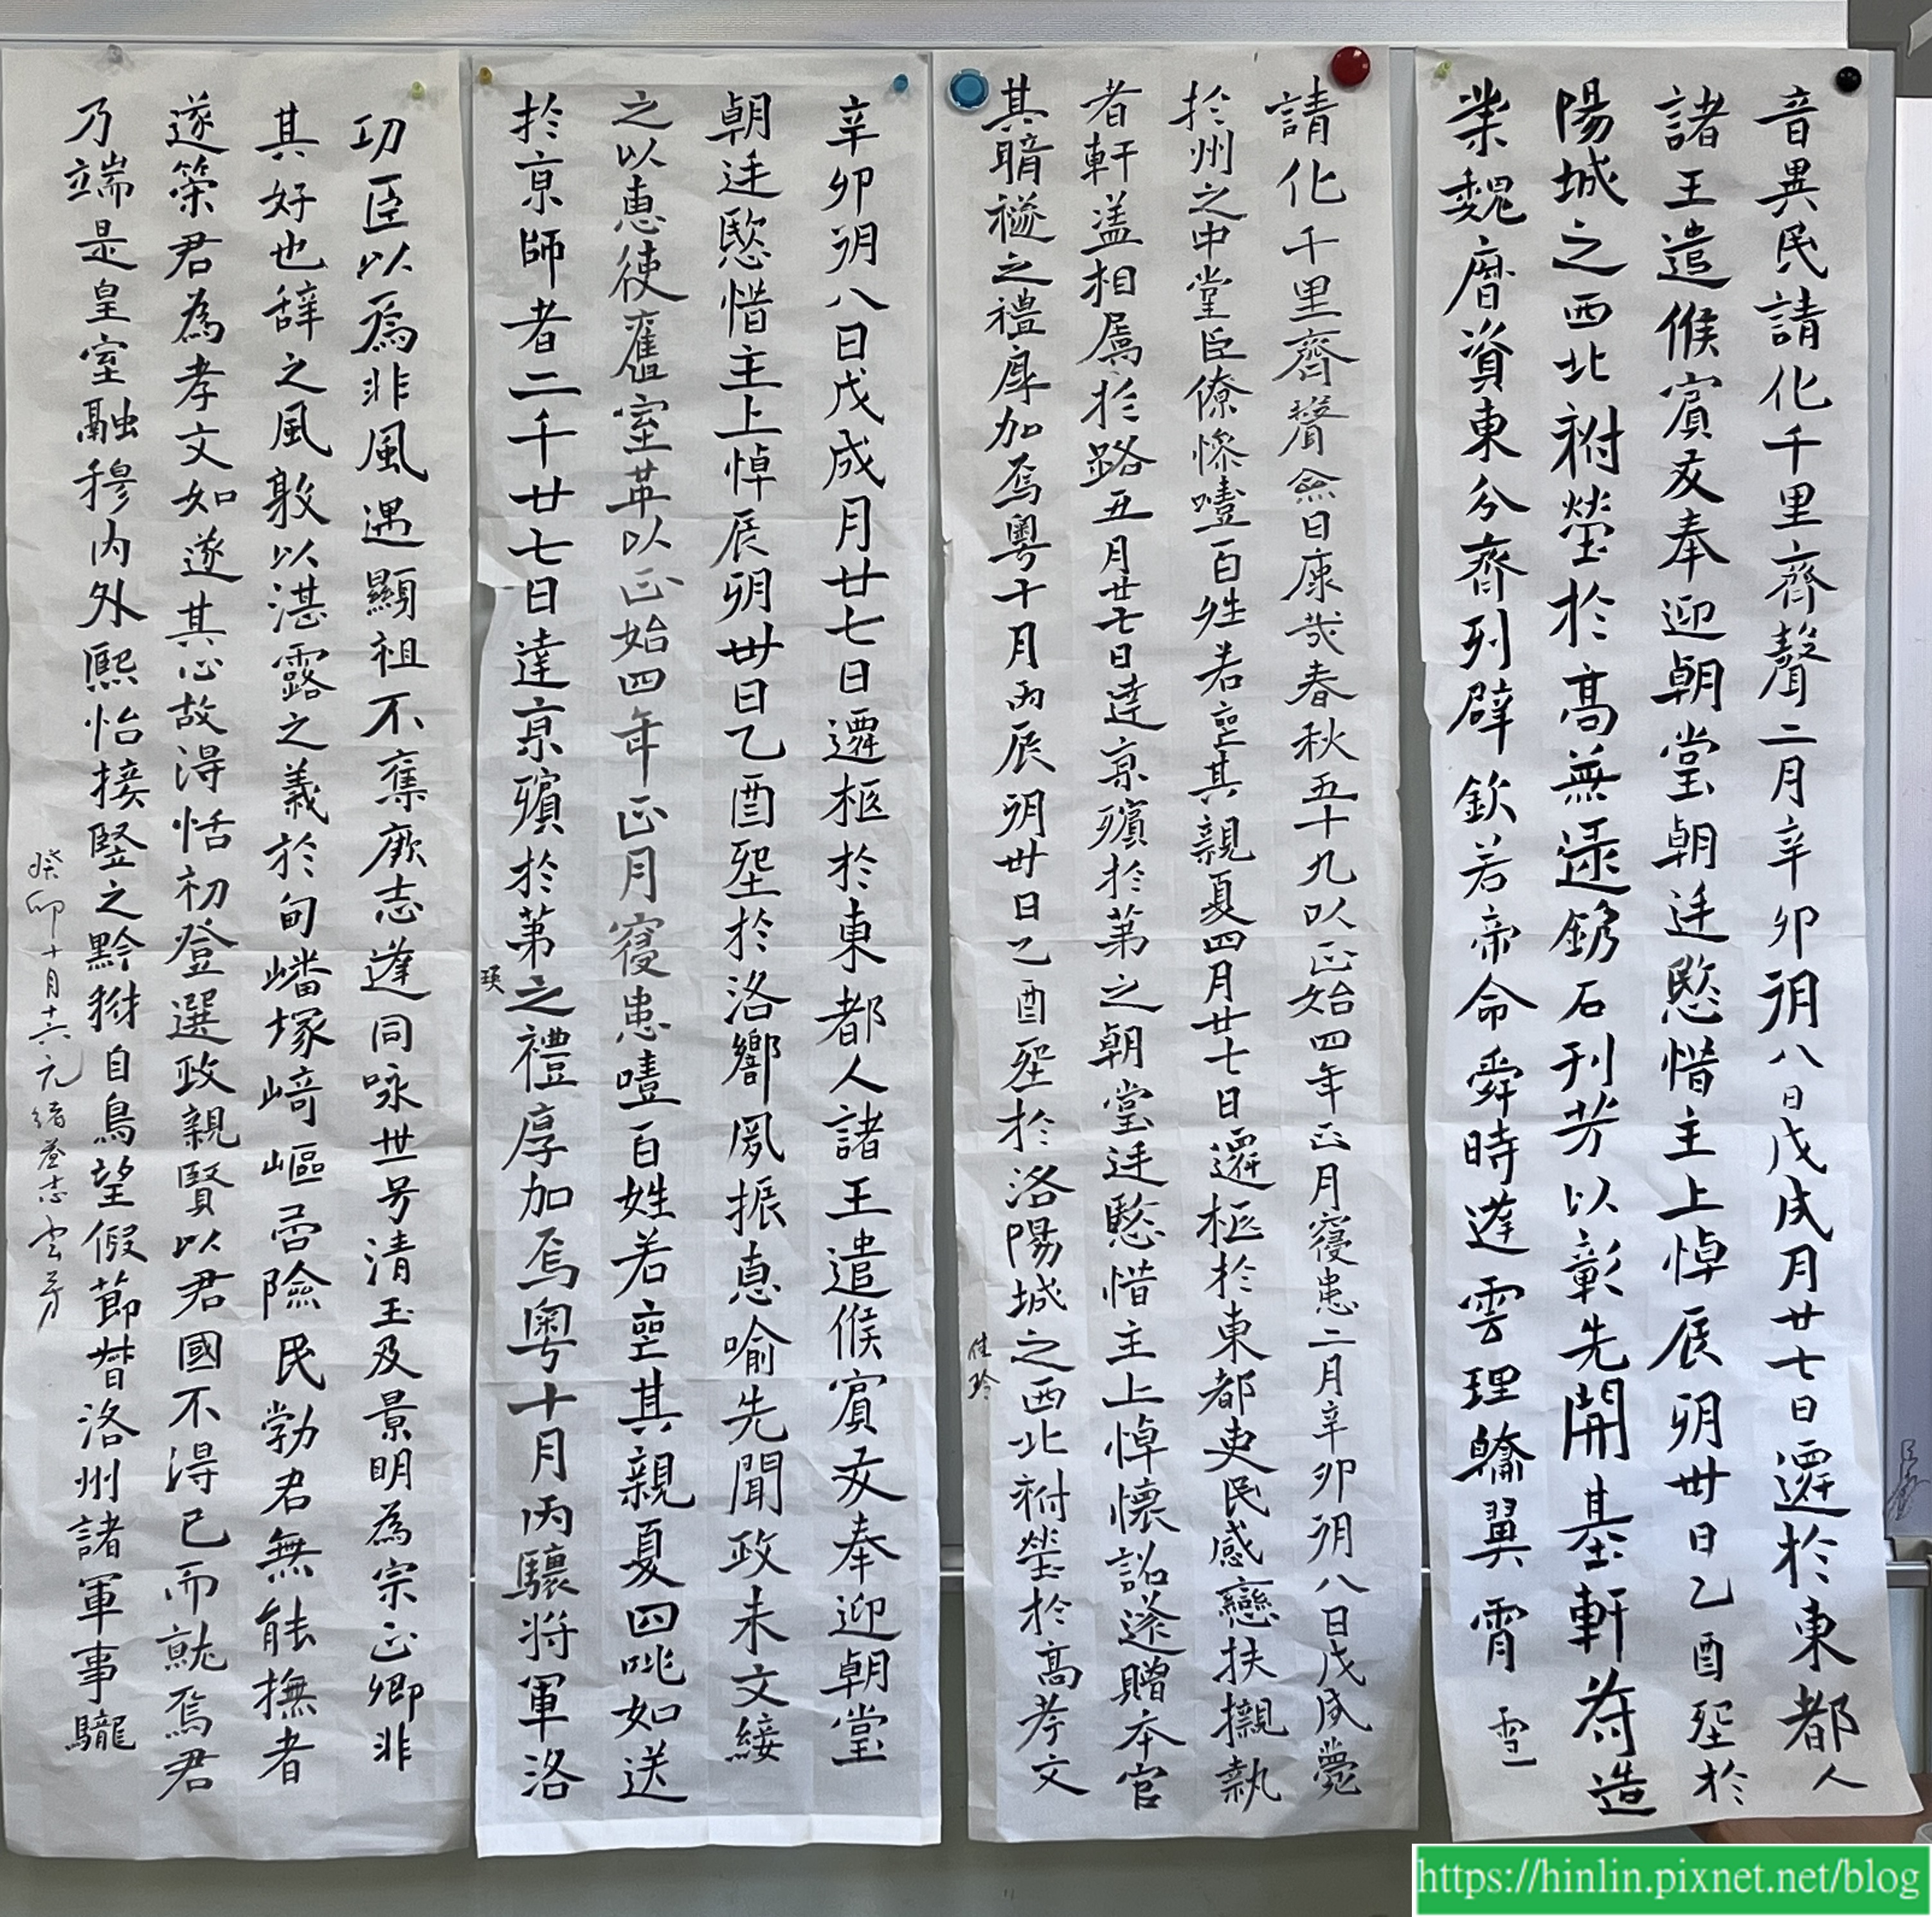 音異民請化千里齊聲二月辛卯朔八日戊戌月廿七日遷於東都人
諸王遣候賓友奉迎朝堂朝廷愍惜主上悼辰朔卅日乙酉堲於
陽城之西北祔塋於高無逯鎸石刊芳以彰先開基軒苻造
業魏曆資東分齊列辟欽若帝命舜時蓬雲理翰翼霄 雪
請化千里齊聲僉曰康哉春秋五十九以正始四年正月寑患二月辛卯朔八日戊戌薨
於州之中堂臣僚慘噎百姓若喪其親夏四月廿七日遷柩於東都吏民感戀扶櫬執
者軒盖相属於路五月廿七日達京殯於第之朝堂廷愍惜主上悼懷詔遂贈本官
其賵襚之禮厚加焉粤十月丙辰朔卅日乙酉堲於洛陽城之西北祔塋於高孝文
佳玲
辛卯朔八日戊戌月廿七日遷柩於東都人諸王遣候賓友奉迎朝堂
朝廷愍惜主上悼辰朔卅日乙酉堲於洛嚮夙振惪喻先聞政未文綏
之以惠使舊室英以正始四年正月寑患噎百姓若喪其親夏四咷如送
於京師者二千廿七日達京殯於第之禮厚加焉粤十月丙驤将軍洛
瑛
功臣以為非風遇顯祖不奪厥志蓬同咏世号清玉及景明為宗正卿非
其好也辝之風敦以湛露之義於甸嶓塚﨑嶇嵒險民勃君無能撫者
遂策君為孝文如遂其心故淂恬初登選政親賢以君國不淂已而就焉君
乃端是皇室融穆内外熙怡接竪之黔自鳥望假節督洛州諸軍事
癸卯十月十六元緒墓志雲芳
https://hinlin.pixnet.net/blog